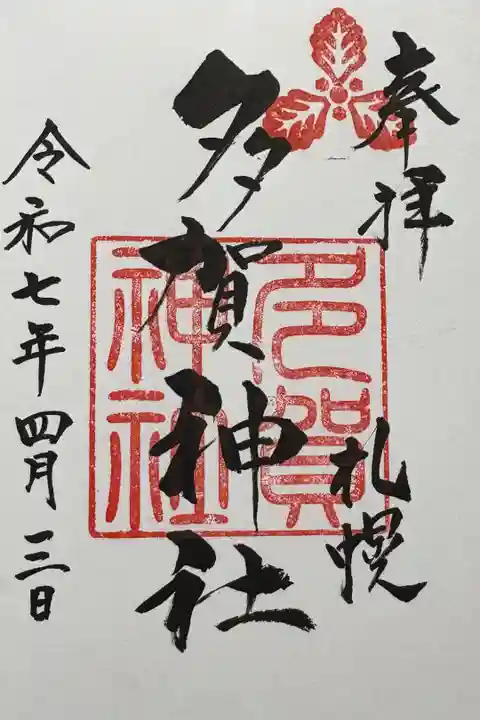 奉拝
札幌
多賀神社
多賀
神社
令和七年四月三日